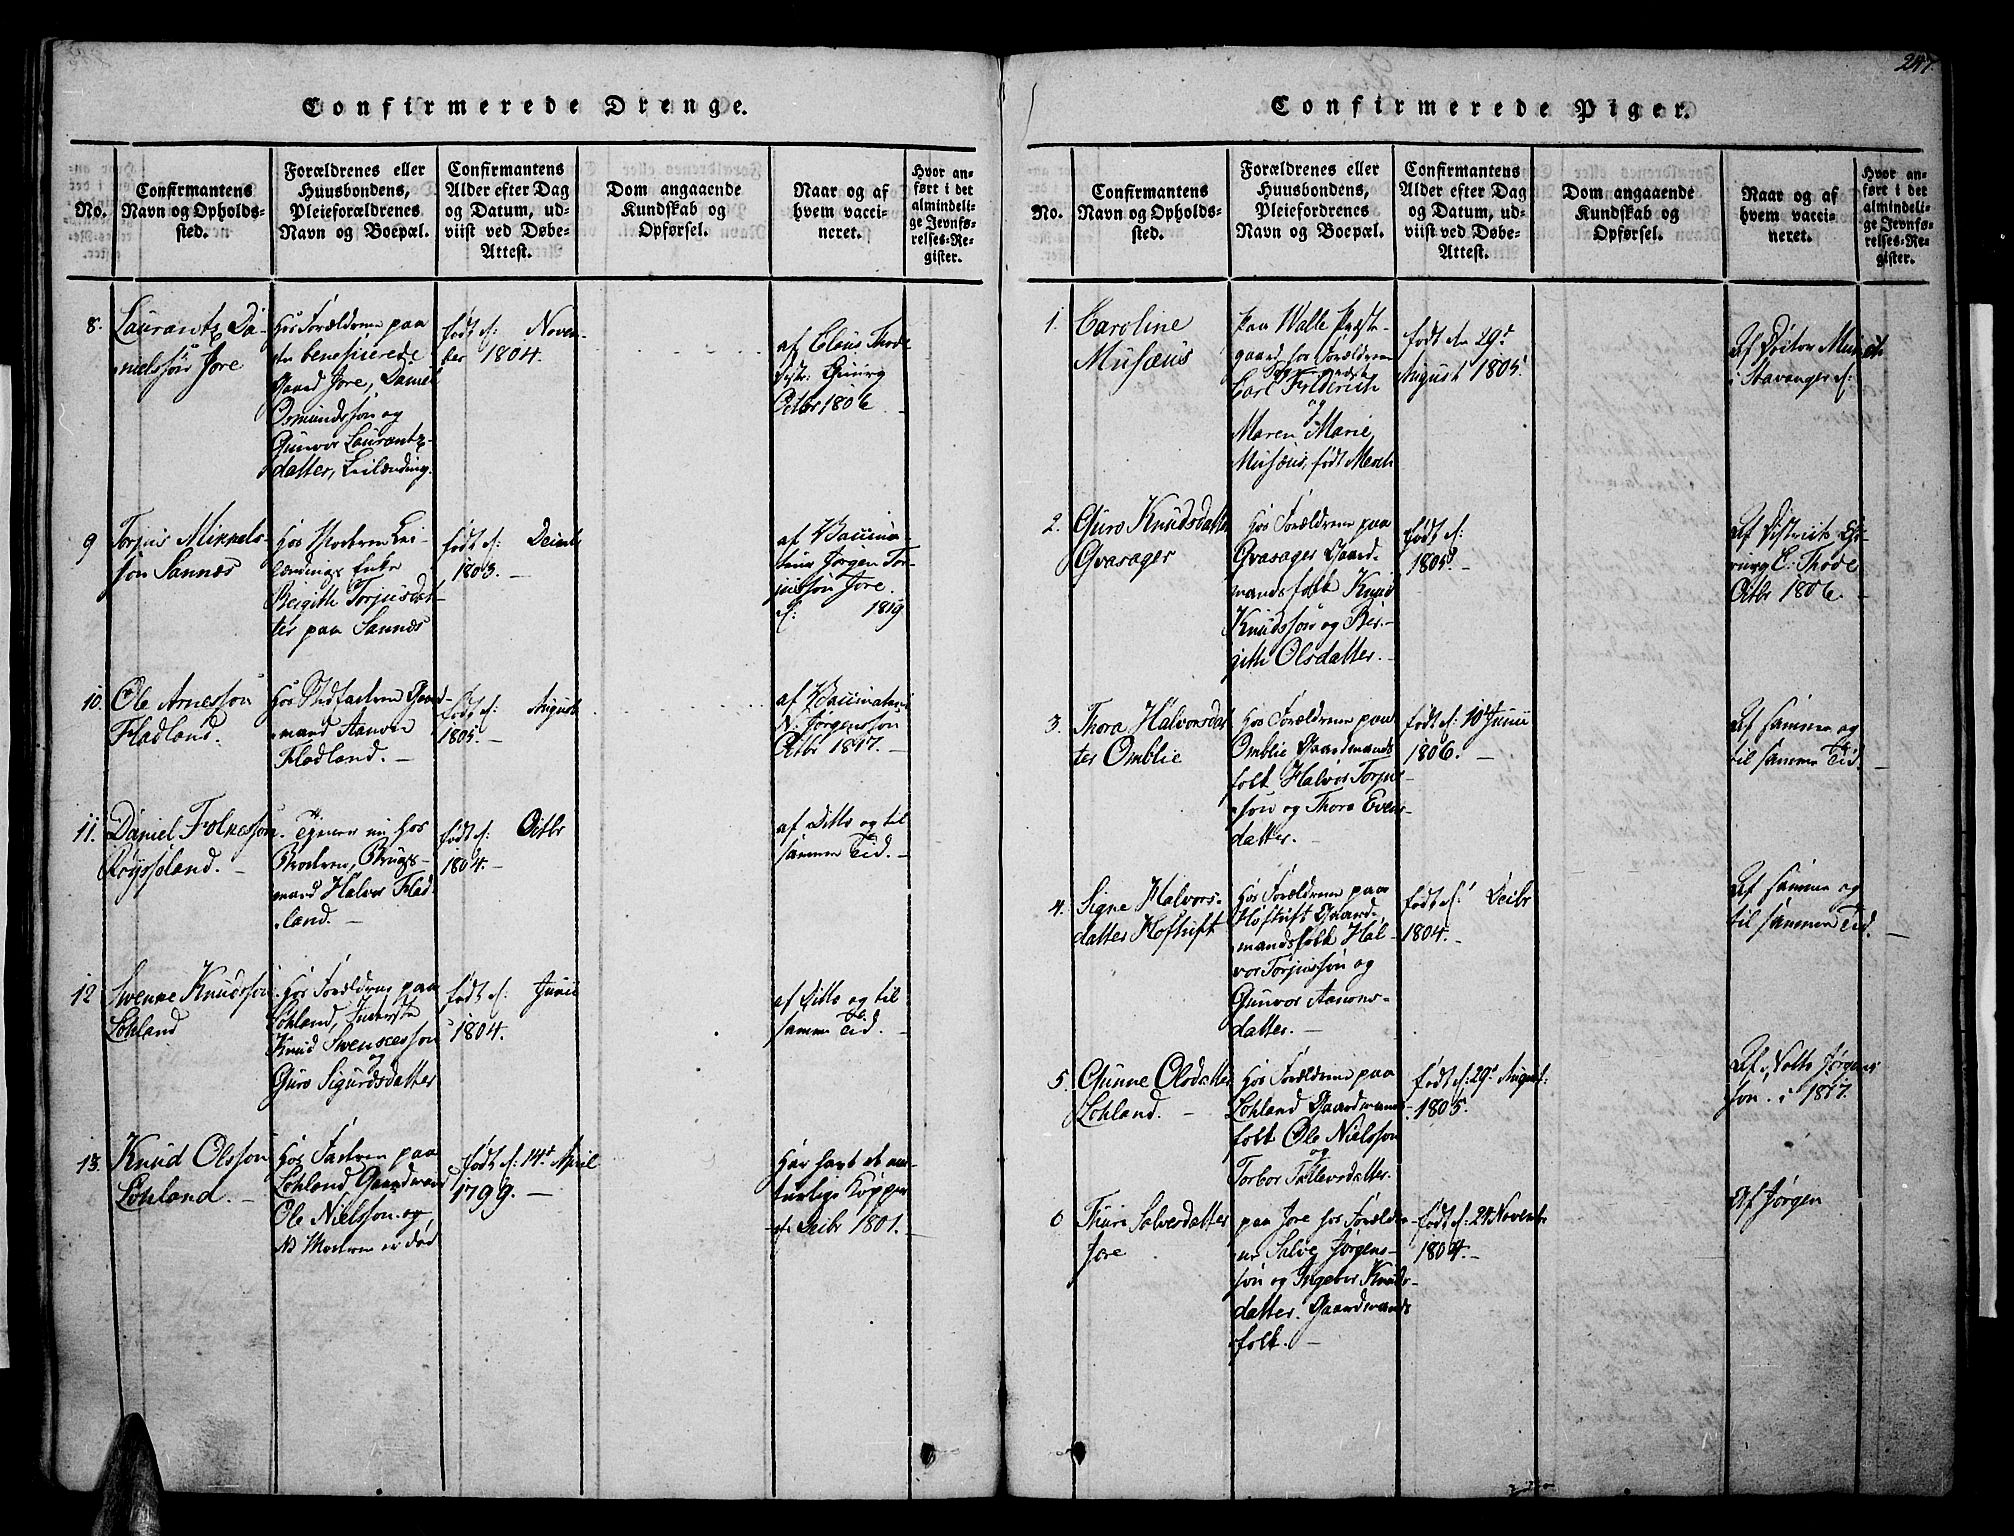 247.
Confirmerede Drenge.
No.
Confirmantens
Navn og Opholds-
sted.
Forældrenes eller
Huusbondens,
Pleieforældrenes
Navn og Boepæl.
Confirmantens
Alder efter Dag
og Datum, ud-
viist ved Døbe-
Attest.
Dom angaaende
Kundskab og
Opførsel.
Naar og af
hvem vacci-
neret.
Hvor an-
ført i det
almindeli-
ge Jevnfø-
relses-Re-
gister.
8.
Laurantz Da-
nielssøn Jore
hos Forældrene paa
beneficerede
Gaard Jore, Daniel
Osmundssøn og
Gunvor Laurantz-
datter, Leilænding.
født d: Novem-
ber 1804.
af Claus Thode
Distr: Chirurg
Octbr 1806
9
Torjus Mikkels-
søn Sannæs
hos Moderen Lei-
lændings Enke
Birgith Torjusdat-
ter paa Sannæs
født d: Decembr
1803.
af Vaccina-
teur Jørgen Tor-
jussøn Jore.
d: 1819
10.
Ole Arnessøn
Fladland.
hos Stedfaderen Gaard-
mand Aanon
Fladland.
født d: August
1805.
af Vaccinateur
N. Jørgenssøn
Octbr 1817.
11.
Daniel Folkessøn
Røyssland.
Tjener nu hos
Broderen, Brugs-
mand Halvor Flad-
land.
født d: Octbr
1804.
af Ditto og til
samme Tid.
12
Svenne Knudssøn
Lohland
hos Forældrene paa
Lohland, Inderste
Knud Svennessøn
og
Guro Sigurdsdatter
født d: Junii
1804.
af Ditto og til
samme Tid.
13.
Knud Olssøn
Lohland.
hos Faderen paa
Lohland Gaardmand
Ole Nielssøn og
NB Moderen er død
født d: 14de April
1799.
Har havt de na-
turlige Kopper
Decbr 1801.
Confirmerede Piger.
No.
Confirmantens
Navn og Opholds-
sted.
Forældrenes eller
Huusbondens,
Pleiefordrenes
Navn og Boepæl.
Confirmantens
Alder efter Dag
og Datum, ud-
viist ved Døbe-
Attest.
Dom angaaende
Kundskab og
Opførsel.
Naar og af
hvem vacci-
neret.
Hvor an-
ført i det
almindeli-
ge Jevnfø-
relses-Re-
gister.
1.
Caroline
Musæus
paa Walle Præste-
gaard hos Forældrene
Sognepræst
Carl Friderich
og
Maren Marie
Musæus, født Monch
født den 29de
August 1805.
Af Doctor Munch
i Stavanger d:
2.
Guro Knudsdatter
Qvasager
hos Forældrene paa
Qvasager Gaard-
mandsfolk Knud
Knudssøn og Ber-
githe Olsdatter.
født d:
1805.
Af Districts Chi-
rurg C: Thode
Octbr 1806.
3.
Thora Halvorsdat-
ter Omblie
hos Forældrene paa
Omblie Gaardmands
folk Halvor Torjus-
søn og Thora Evens
datter.
født d: 10de Junii
1806.
Af samme og
til samme Tid.
4.
Signe Halvors-
datter Hoftuft
hos Forældrene paa
Hoftuft Gaard-
mandsfolk Hal-
vor Torjussøn og
Gunvor Aanons-
datter.
født d: Decbr
1804.
Af samme og
til samme Tid.
5.
Gunne Olsdatter
Lohland.
hos Forældrene paa
Lohland Gaardmands-
folk Ole Nielssøn
og
Torbor Tallevsdatter.
født d: 29de August:
1805.
Af Jørgens-
søn. i 1817.
6
Thuri Salvesdatter
Jore
paa Jore hos Foræld-
re Salve Jørgens-
søn og Ingebor Knuds-
datter. Gaardmands
folk.
født d: 24 Novembr
1804.
Af Jørgen